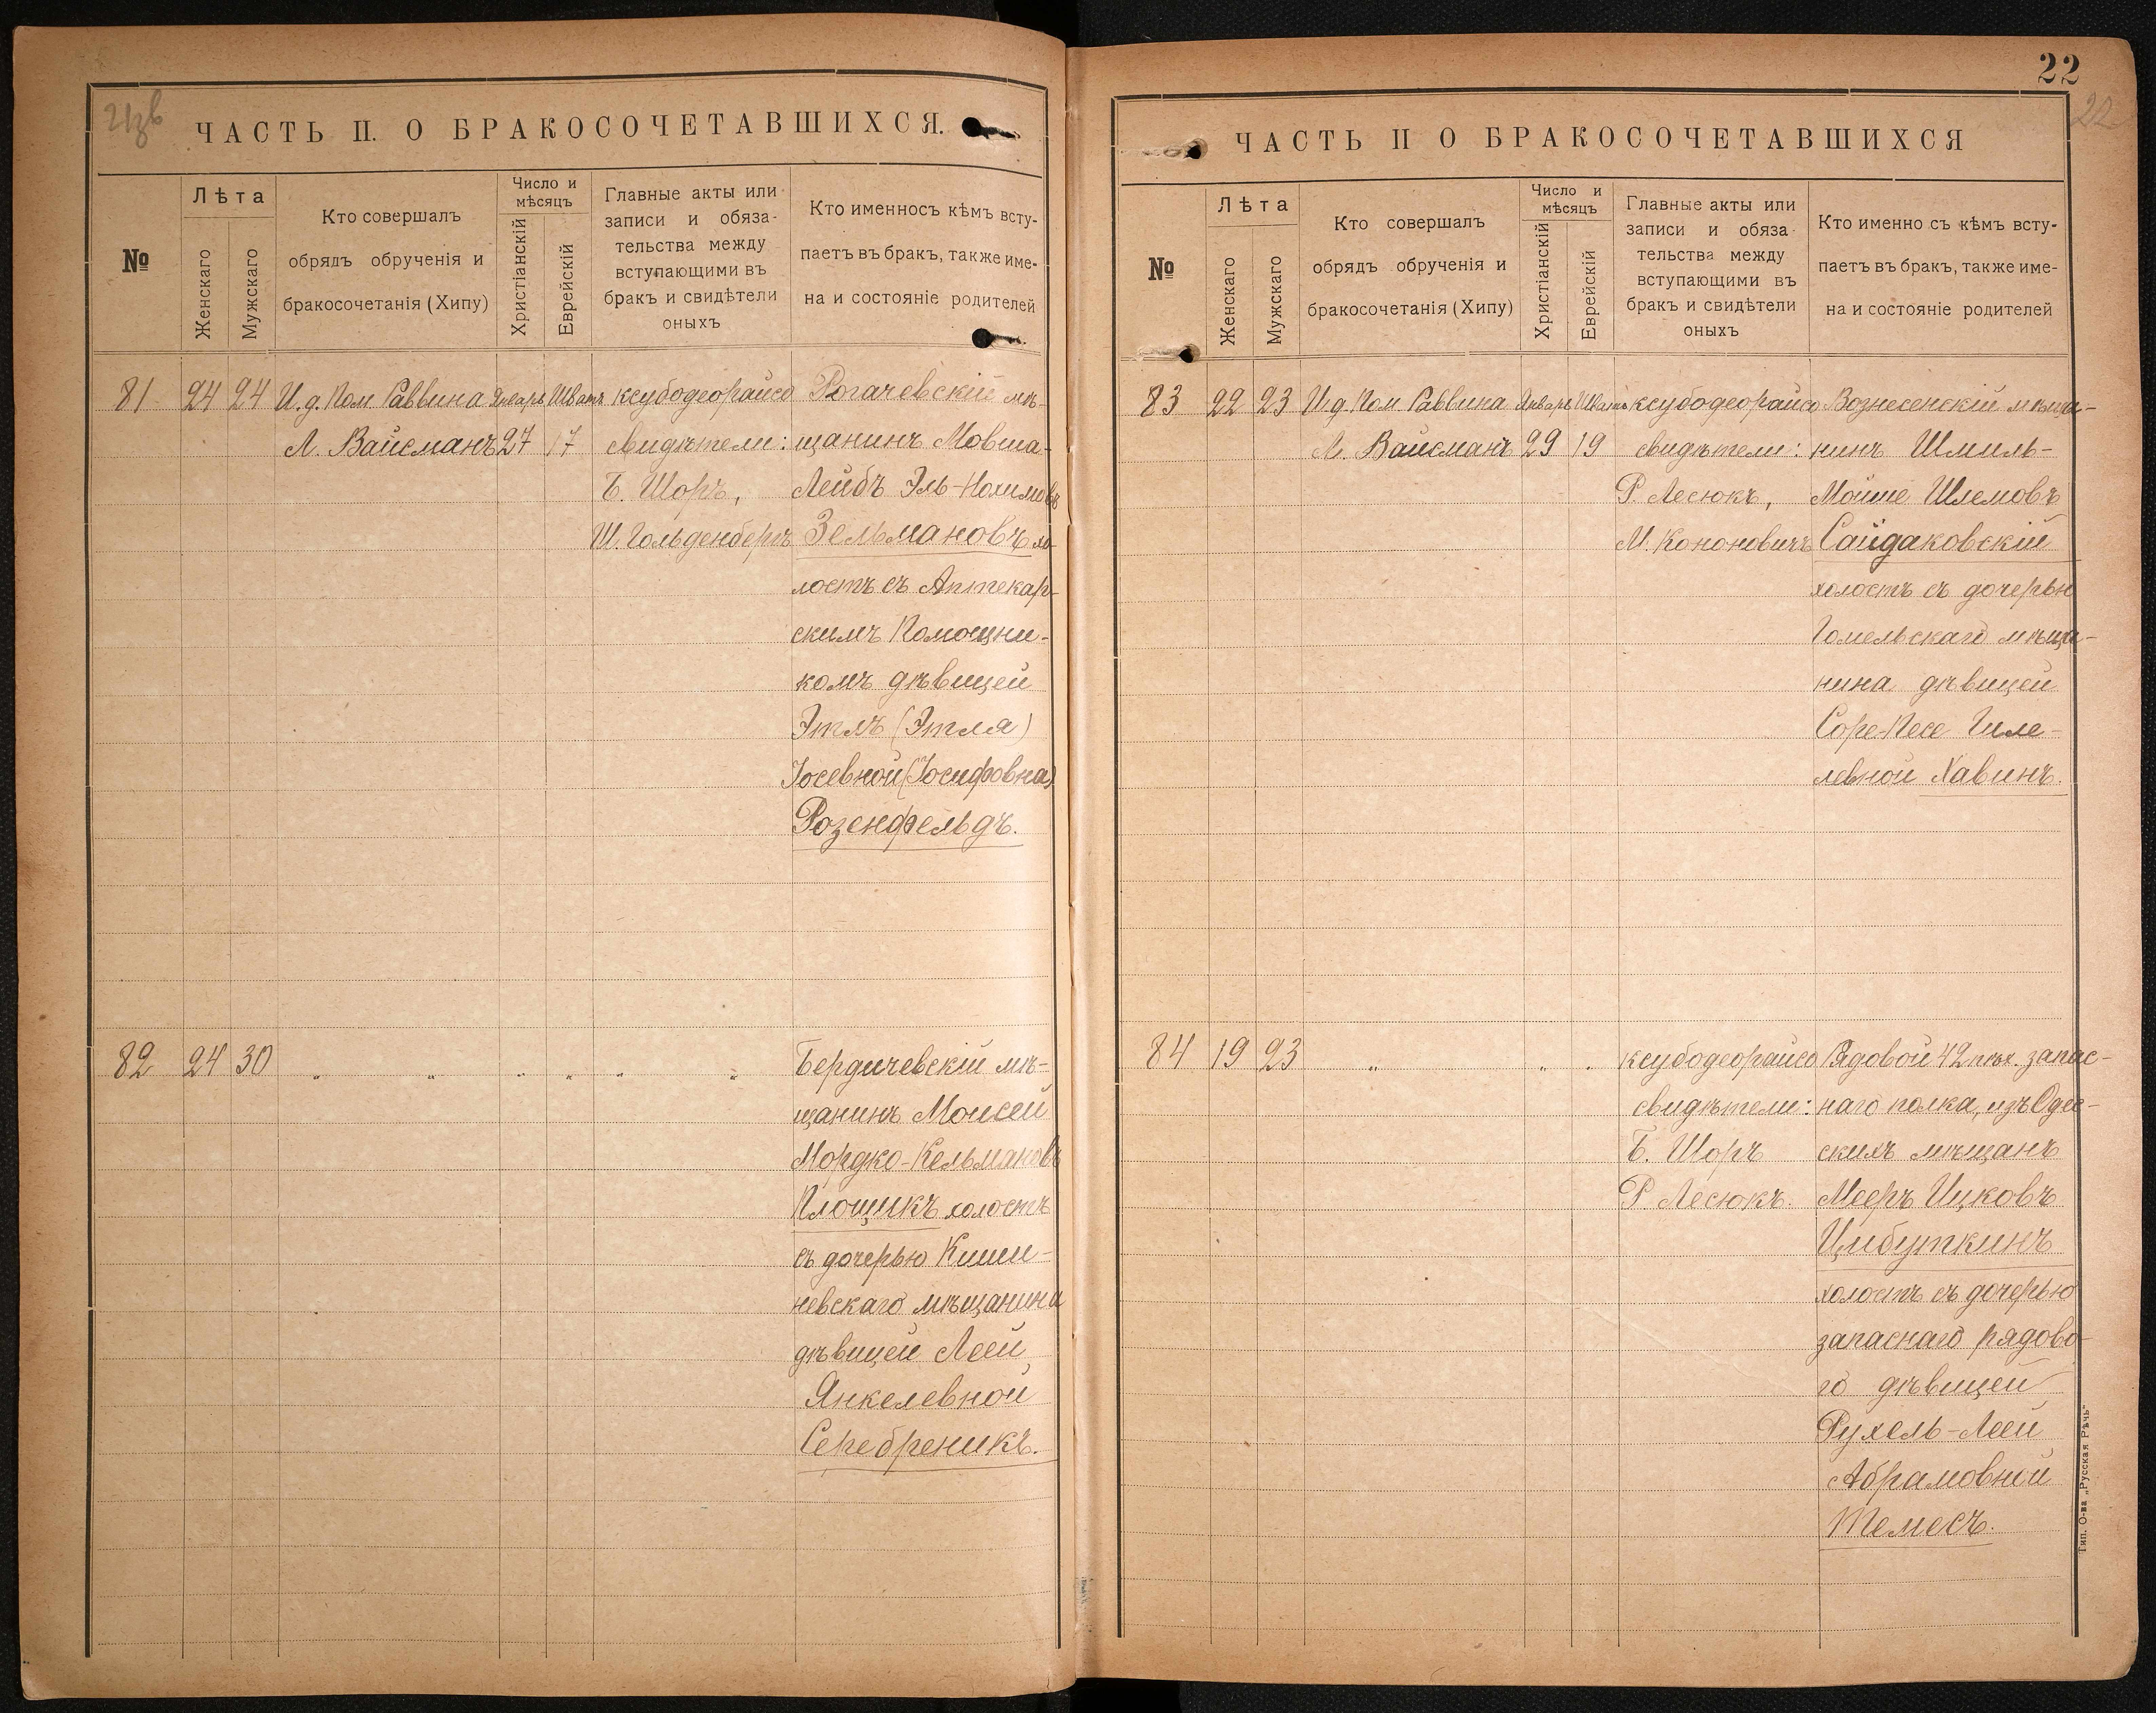 21 зв
ЧАСТЬ II. О БРАКОСОЧЕТАВШИХСЯ.
№
Лѣта
Женскаго
Мужскаго
Кто совершалъ
обрядъ обрученія и
бракосочетанія (Хипу)
Число и
мѣсяцъ
Христіанскій
Еврейскій
Главные акты или
записи и обяза-
тельства между
вступающими въ
бракъ и свидѣтели
оныхъ
Кто именносъ кѣмъ всту-
паетъ въ бракъ, также име-
на и состояніе родителей
81 24 24 И.д. Пом Раввина Январь Шватъ ксубодеорайсо Рогачевскій мѣ-
Л. Вайсманъ 27 17 свидѣтели: щанинъ Мовша-
Б. Шоръ, Лейбъ Эль-Нохимовъ
Ш. Гольденбергъ Зельмановъ хо-
лостъ съ Аптекар-
скимъ Помощни-
комъ дѣвицей
Этлъ (Этля)
Іосевной (Іосифовна)
Розенфельдъ.
82 24 30 „ „ „ „ „ „ Бердичевскій мѣ-
щанинъ Моисей
Мордко-Кельмановъ
Площикъ холостъ
съ дочерью Киши-
невскаго мѣщанина
дѣвицей Леей
Янкелевной
Серебреникъ.
22
22
ЧАСТЬ II О БРАКОСОЧЕТАВШИХСЯ
№
Лѣта
Женскаго
Мужскаго
Кто совершалъ
обрядъ обрученія и
бракосочетанія (Хипу)
Число и
мѣсяцъ
Христіанскій
Еврейскій
Главные акты или
записи и обяза-
тельства между
вступающими въ
бракъ и свидѣтели
оныхъ
Кто именно съ кѣмъ всту-
паетъ въ бракъ, также име-
на и состояніе родителей
83 22 23 И.д. Пом Раввина Январь Шватъ ксубодеорайсо Вознесенскій мѣща-
Л. Вайсманъ 29 19 свидѣтели: нинъ Шмиль-
Р. Лесюкъ, Мойше Шлемовъ
М. Кононовичъ Сайдаковскій
холостъ съ дочерью
Гомельскаго мѣща-
нина дѣвицей
Соре-Песе Гиле-
левной Хавинъ.
84 19 23 „ „ „ ксубодеорайсо Рядовой 42 пѣх. запас-
свидѣтели: наго полка, изъ Одес-
Б. Шоръ скихъ мѣщанъ
Р. Лесюкъ. Мееръ Ицковъ
Цибуткинъ
холостъ съ дочерью
запаснаго рядово-
го дѣвицей
Рухель-Леей
Абрамовной
Темесъ.
Тип. О-ва „Русская Рѣчь“